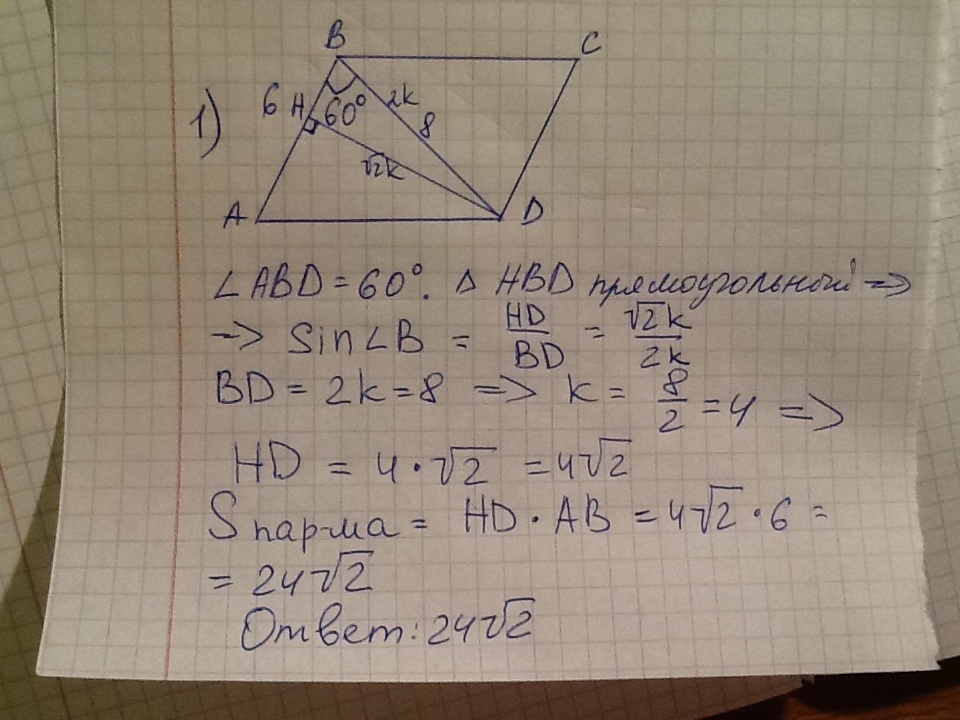 B
C
6
H
60°
2k
8
1)
√2k
A
D
∠ABD = 60°. Δ HBD прямоугольный =>
=> Sin∠B = HD/BD = √2k/2k
BD = 2k = 8 => k = 8/2 = 4 =>
HD = 4 · √2 = 4√2
Sпар-ма = HD · AB = 4√2 · 6 =
= 24√2
Ответ: 24√2